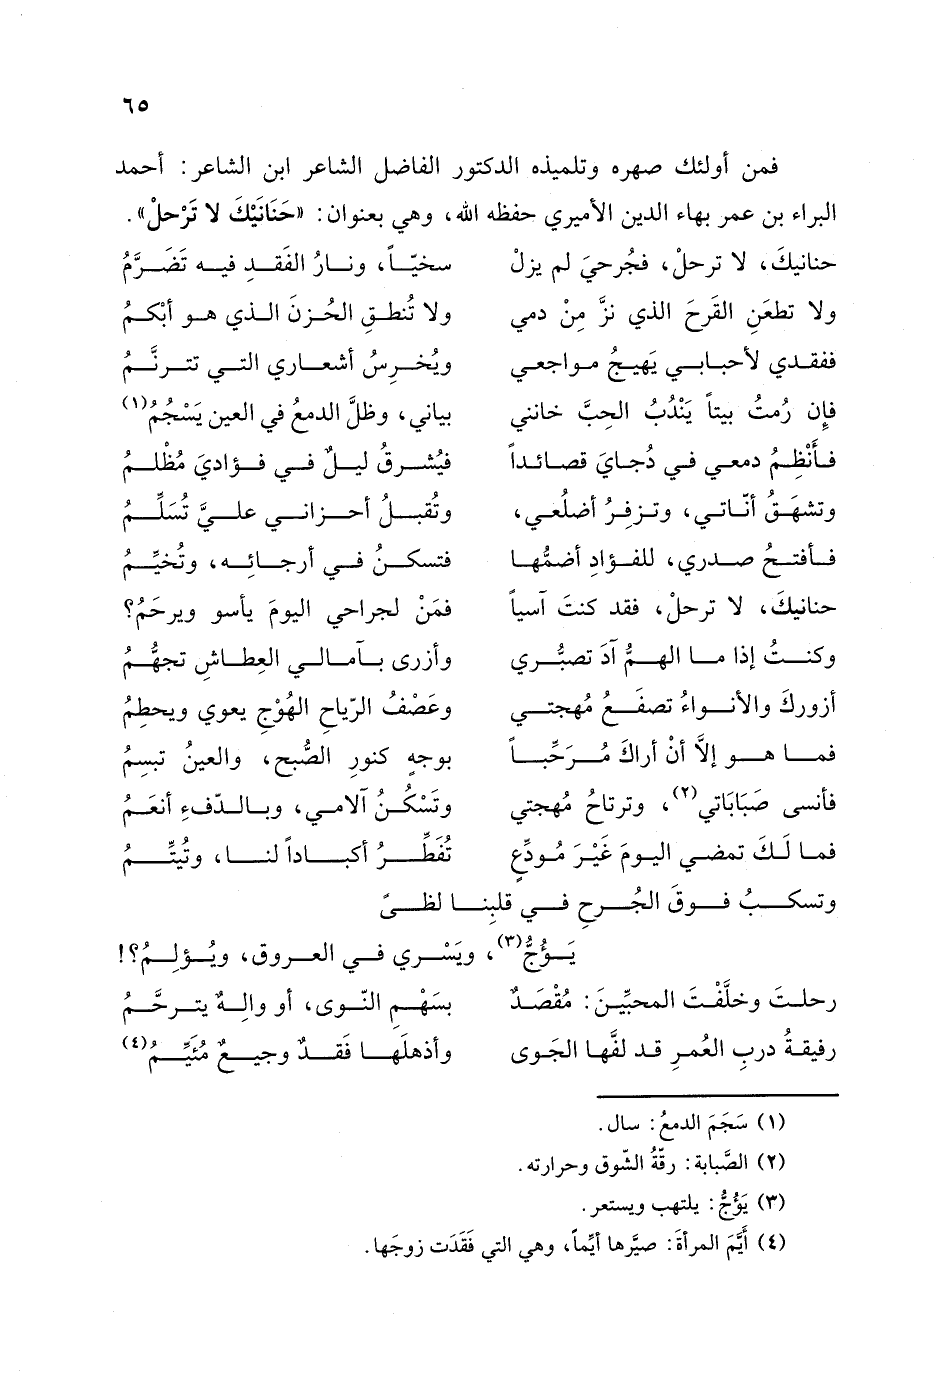 ٦٥
فمن أولئك صهره وتلميذه الدكتور الفاضل الشاعر ابن الشاعر : أحمد
البراء بن عمر بهاء الدين الأميري حفظه الله، وهي بعنوان: «حَنَانَيْكَ لا تَرْحلْ».
حنانيكَ، لا ترحلْ، فجُرحيَ لم يزلْ سخيّاً، ونارُ الفَقدِ فيه تَضَرَّمُ
ولا تطعَنِ القَرحَ الذي نزَّ مِنْ دمي ولا تُنطِقِ الحُزنَ الذي هو أبْكَمُ
ففقدي لأحبابي يَهيجُ مواجعي ويُخرِسُ أشعاري التي تترنَّمُ
فإن رُمتُ بيتاً يَنْدُبُ الحبَّ خانني بياني، وظلَّ الدمعُ في العينِ يَسْجُمُ(١)
فأَنْظِمُ دمعي في دُجايَ قصائداً فيُشرِقُ ليلٌ في فؤاديَ مُظلِمُ
وتشهَقُ أنّاتي، وتزفِرُ أضلُعي، وتُقبِلُ أحزاني عليَّ تُسَلِّمُ
فأفتحُ صدري، للفؤادِ أضمُّها فتسكنُ في أرجائه، وتُخيِّمُ
حنانيكَ، لا ترحلْ، فقد كنتَ آسياً فمَنْ لجراحي اليومَ يأسو ويرحَمُ؟
وكنتُ إذا ما الهمُّ آدَ تصبُّري وأزرى بآمالي العِطاشِ تجهُّمُ
أزوركَ والأنواءُ تصفَعُ مُهجتي وعَصْفُ الرّياحِ الهُوْجِ يعوي ويحطِمُ
فما هو إلاَّ أنْ أراكَ مُرَحِّباً بوجهٍ كنورِ الصُّبحِ، والعينُ تبسِمُ
فأنسى صَبَابَاتي(٢)، وترتاحُ مُهجتي وتَسْكُنُ آلامي، وبالدّفءِ أنعَمُ
فما لَكَ تمضي اليومَ غَيْرَ مُودِّعٍ تُفَطِّرُ أكباداً لنا، وتُيَتِّمُ
وتسكبُ فوقَ الجُرحِ في قلبِنا لظىً
يَؤُجُّ(٣)، ويَسْري في العروق، ويُؤلِمُ؟!
رحلتَ وخلَّفْتَ المحبِّيْنَ: مُقْصَدٌ بسَهْمِ النّوى، أو والهٌ يترحَّمُ
رفيقةُ دربِ العُمرِ قد لفَّها الجَوى وأذهلَها فَقدٌ وجيعٌ مُئَيِّمُ(٤)
(١) سَجَمَ الدمعُ: سال.
(٢) الصَّبابة: رقّةُ الشّوق وحرارته.
(٣) يَؤُجُّ: يلتهب ويستعر.
(٤) أَيَّمَ المرأةَ: صيَّرها أيِّماً، وهي التي فَقَدَت زوجَها.